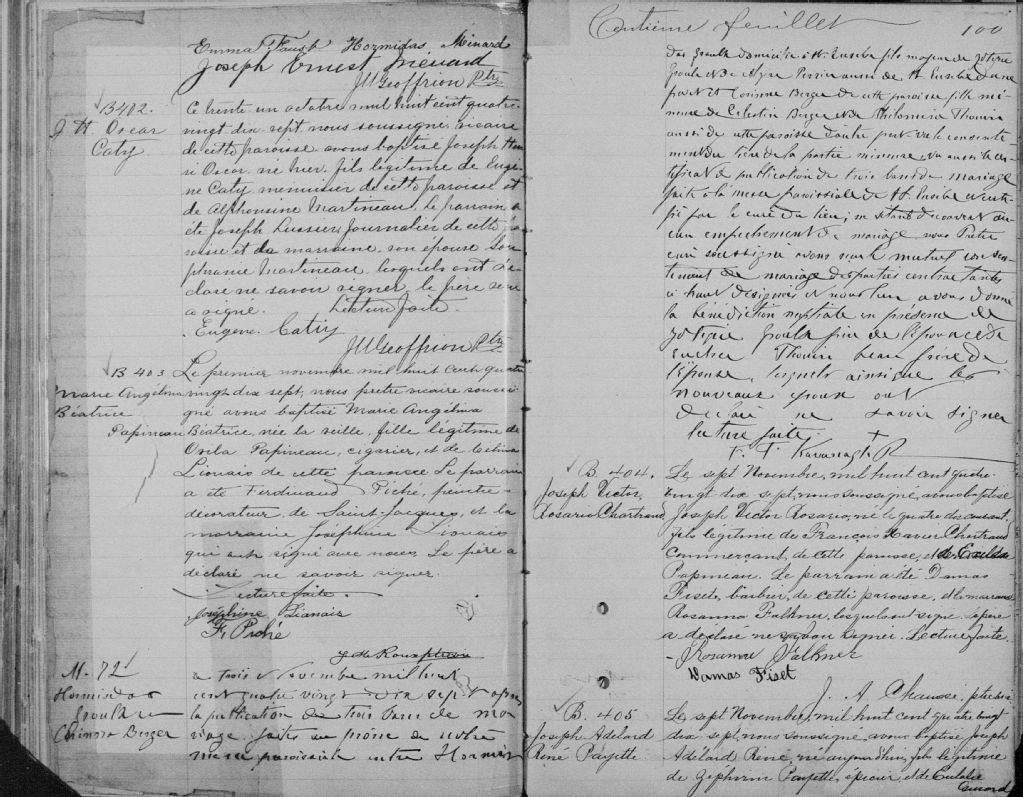 Emma Faust Hormidas Ménard
Joseph Ernest Ménard
JM Geoffrion Ptre
B 402.
J. H. Oscar
Caty
Ce trente un octobre mil huit cent quatre
vingt dix sept nous soussigné, vicaire
de cette paroisse avons baptisé Joseph Hen
ri Oscar, né hier, fils légitime de Eugè
ne Caty menuisier de cette paroisse et
de Alphonsine Martineau. Le parrain a
été Joseph Lussier journalier de cette pa
roisse et la marraine, son épouse So
phranie Martineau, lesquels ont dé
claré ne savoir signer, le père seul
a signé. Lecture faite.
Eugène Caty
JM Geoffrion Ptre
B 403
Marie Angélina
Béatrice
Papineau
Le premier novembre mil huit cent quatre
vingt dix sept, nous prêtre vicaire soussi
gné avons baptisé Marie Angélina
Béatrice, née la veille, fille légitime de
Ovila Papineau, cigarier, et de
Lionais de cette paroisse Le parrain
a été Ferdinand Piché, peintre-
décorateur, de Saint-Jacques, et la
marraine Joséphine Lionais
qui ont signé avec nous. Le père a
déclaré ne savoir signer.
Lecture faite.
Joséphine Lionais
F. Piché
M. 72
Hormisdas
Groulx
Corinne Berger
a trois Novembre mil huit
cent quatre vingt dix sept après
la publication de trois bans de ma
riage faite au prône de notre
messe paroissiale entre Hormis
Centième feuillet 100
das Groulx domicilié à St Eusèbe fils majeur de Zotique
Groulx et de de St Eusèbe d'une
part et Corinne Berger de cette paroisse fille mi
neure de Célestin Berger et de Philomène Thouin
aussi de cette paroisse d'autre part vu le consente
ment du de la partie mineure, vu aussi le cer
tificat de publication de trois bans de mariage
faite à la messe paroissiale de St. Eusèbe
par le curé du lieu; ne s'étant découvert au
cun empêchement de mariage nous Prêtre
curé soussigné avons reçu le mutuel consen
tement de mariage des parties contractantes
ci haut désignées et nous leur avons donné
la bénédiction nuptiale en présence de
Zotique Groulx père de l'époux et de
Thouin beau frère de
l'épouse, lesquels ainsi que les
nouveaux époux ont
déclaré ne savoir signer
lecture faite
F. Kavanagh
B. 404.
Joseph Victor
Rosario Chartrand
Le sept Novembre, mil huit cent quatre-
vingt-dix sept, nous soussigné, avons baptisé
Joseph Victor Rosario, né le quatre du courant,
fils légitime de François Xavier Chartrand
Commerçant, de cette paroisse, et de Exilda
Papineau. Le parrain a été Damas
Fiset, barbier, de cette paroisse, et la marraine
Rosanna Falkner, lesquels ont signé. Le père
a déclaré ne savoir signer. Lecture faite.
Rosanna Falkner
Damas Fiset
J. A. Chausse, ptre
B. 405
Joseph Adelard
René Payette
Le sept Novembre, mil huit cent quatre vingt
dix sept, nous soussigné, avons baptisé Joseph
Adelard René, né aujourd'hui, fils légitime
de Zéphirin Payette, épicier, et de Eulalie